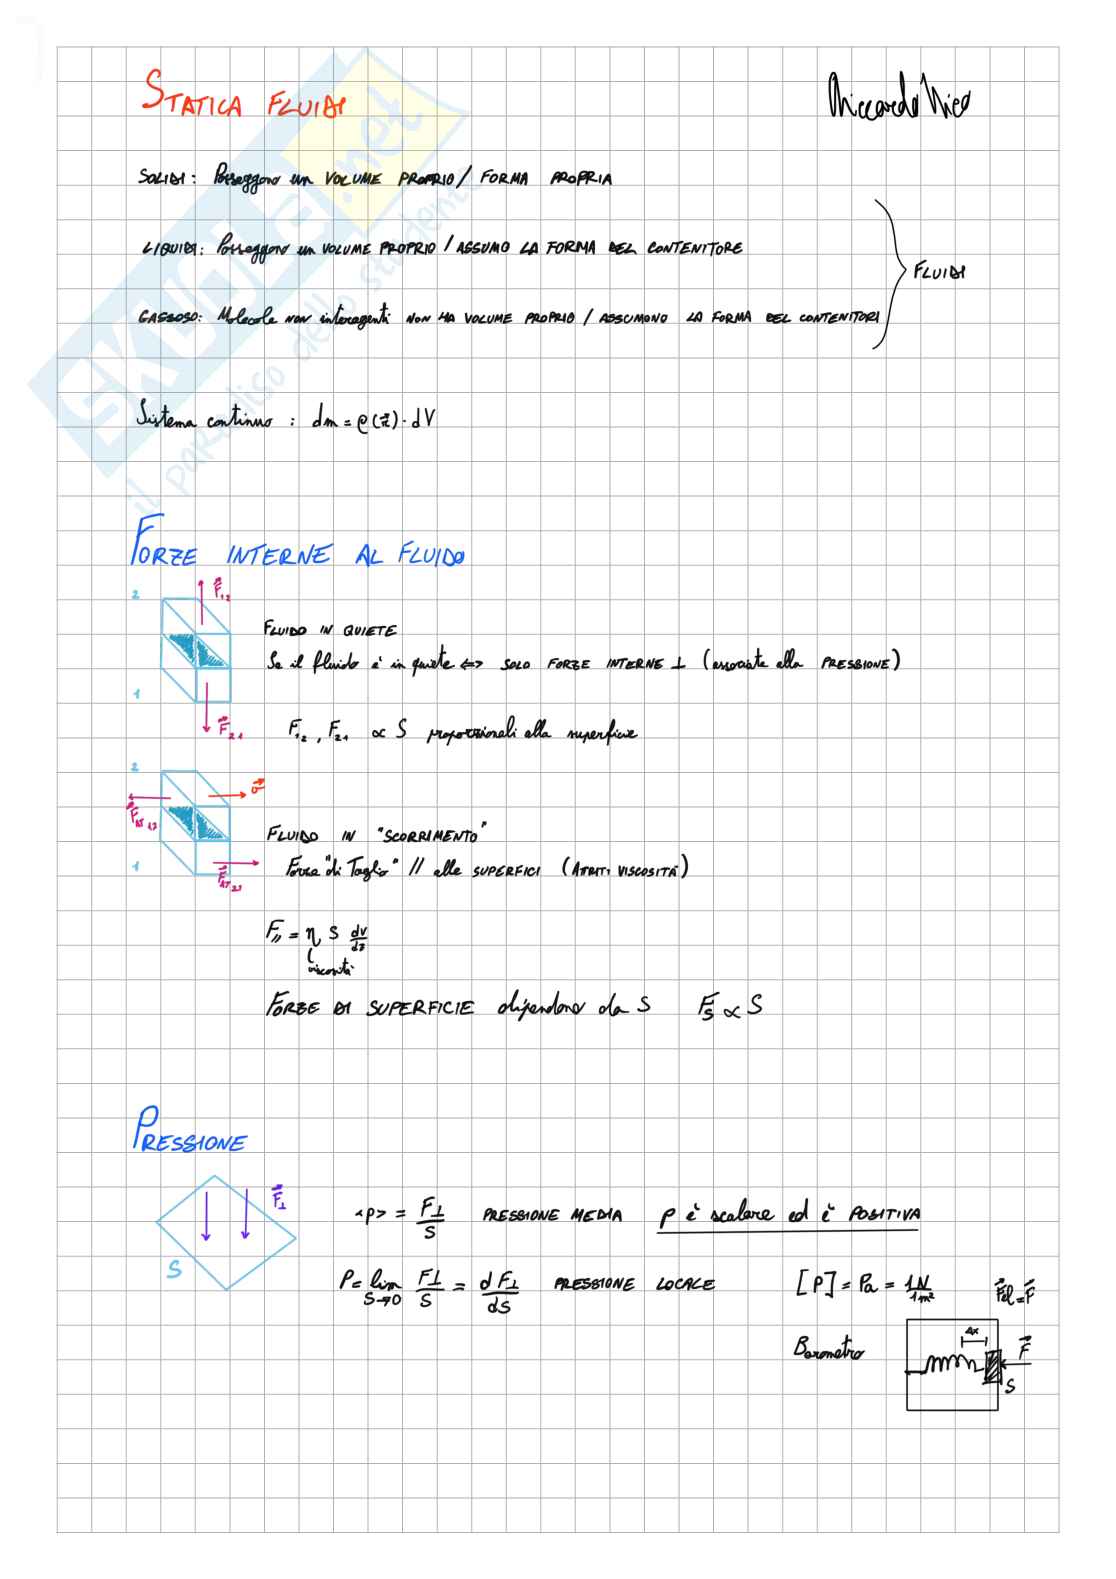 STATICA FLUIDI
Riccardo Nico
SOLIDI: Posseggono un VOLUME PROPRIO / FORMA PROPRIA
LIQUIDI: Posseggono un VOLUME PROPRIO / ASSUMO LA FORMA DEL CONTENITORE
FLUIDI
GASSOSO: Molecole non interagenti NON HA VOLUME PROPRIO / ASSUMONO LA FORMA DEL CONTENITORI
SKUOLA.net
il paradiso dello studente
Sistema continuo : dm = ρ(r⃗)·dV
FORZE INTERNE AL FLUIDO
2 F⃗₁₂
FLUIDO IN QUIETE
Se il fluido è in quiete <=> SOLO FORZE INTERNE ⊥ (associate alla PRESSIONE)
1
F⃗₂₁
F₁₂, F₂₁ ∝ S proporzionali alla superficie
2
v⃗
F⃗
FLUIDO IN "SCORRIMENTO"
1
Forza "di Taglio" // alle SUPERFICI (ATRITI VISCOSITÀ)
F⃗
F// = η S dv/dz
viscosità
FORZE DI SUPERFICIE dipendono da S Fs ∝ S
PRESSIONE
F⃗⊥
S
<p> = F⊥/S PRESSIONE MEDIA p è scalare ed è POSITIVA
P = lim S→0 F⊥/S = dF⊥/dS PRESSIONE LOCALE [P] = Pa = 1N/1m²
F⃗el = F⃗
Barometro
Δx
F⃗
S